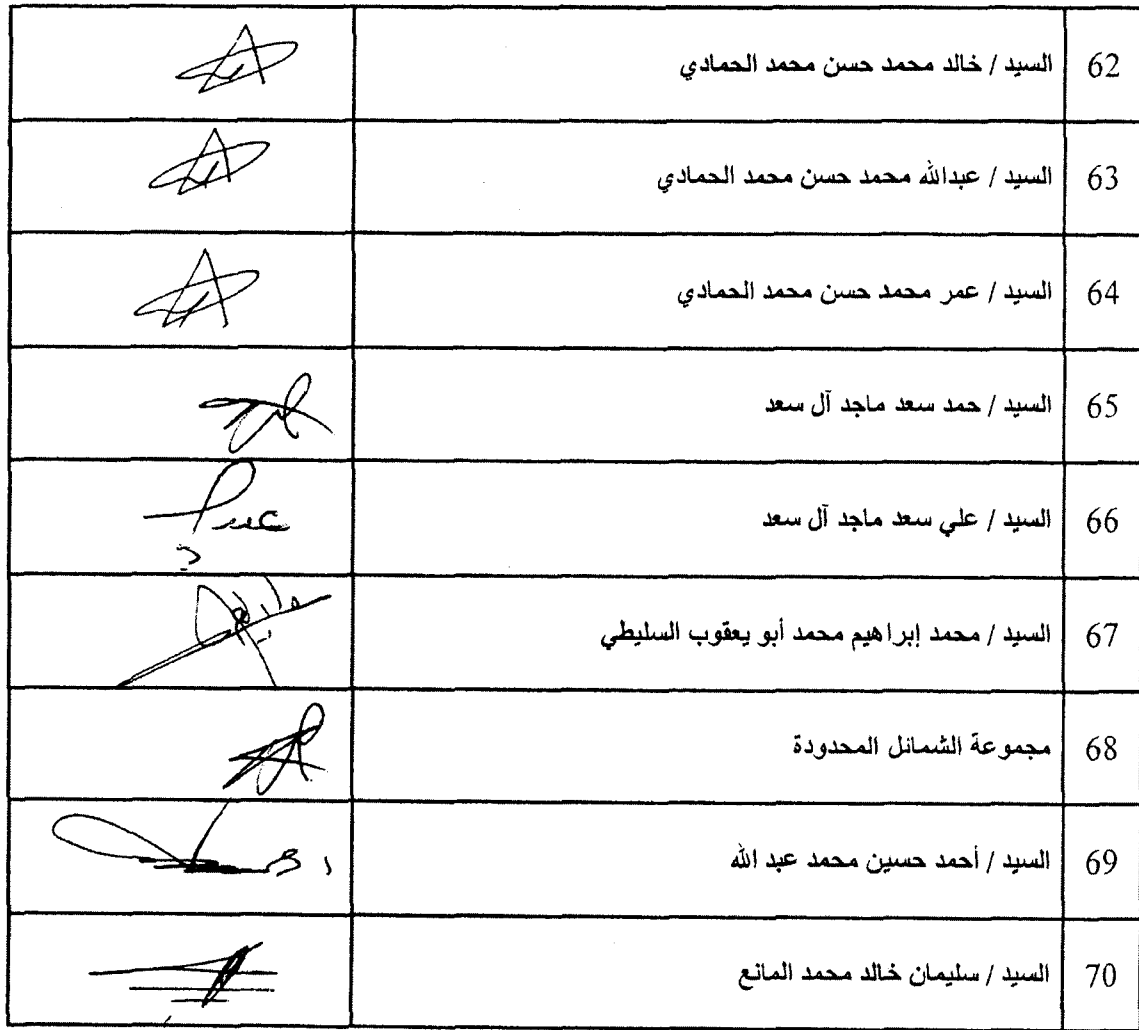 62 السيد / خالد محمد حسن محمد الحمادي
63 السيد / عبدالله محمد حسن محمد الحمادي
64 السيد / عمر محمد حسن محمد الحمادي
65 السيد / حمد سعد ماجد آل سعد
66 السيد / علي سعد ماجد آل سعد
67 السيد / محمد إبراهيم محمد أبو يعقوب السليطي
68 مجموعة الشمائل المحدودة
69 السيد / أحمد حسين محمد عبد الله
70 السيد / سليمان خالد محمد المانع